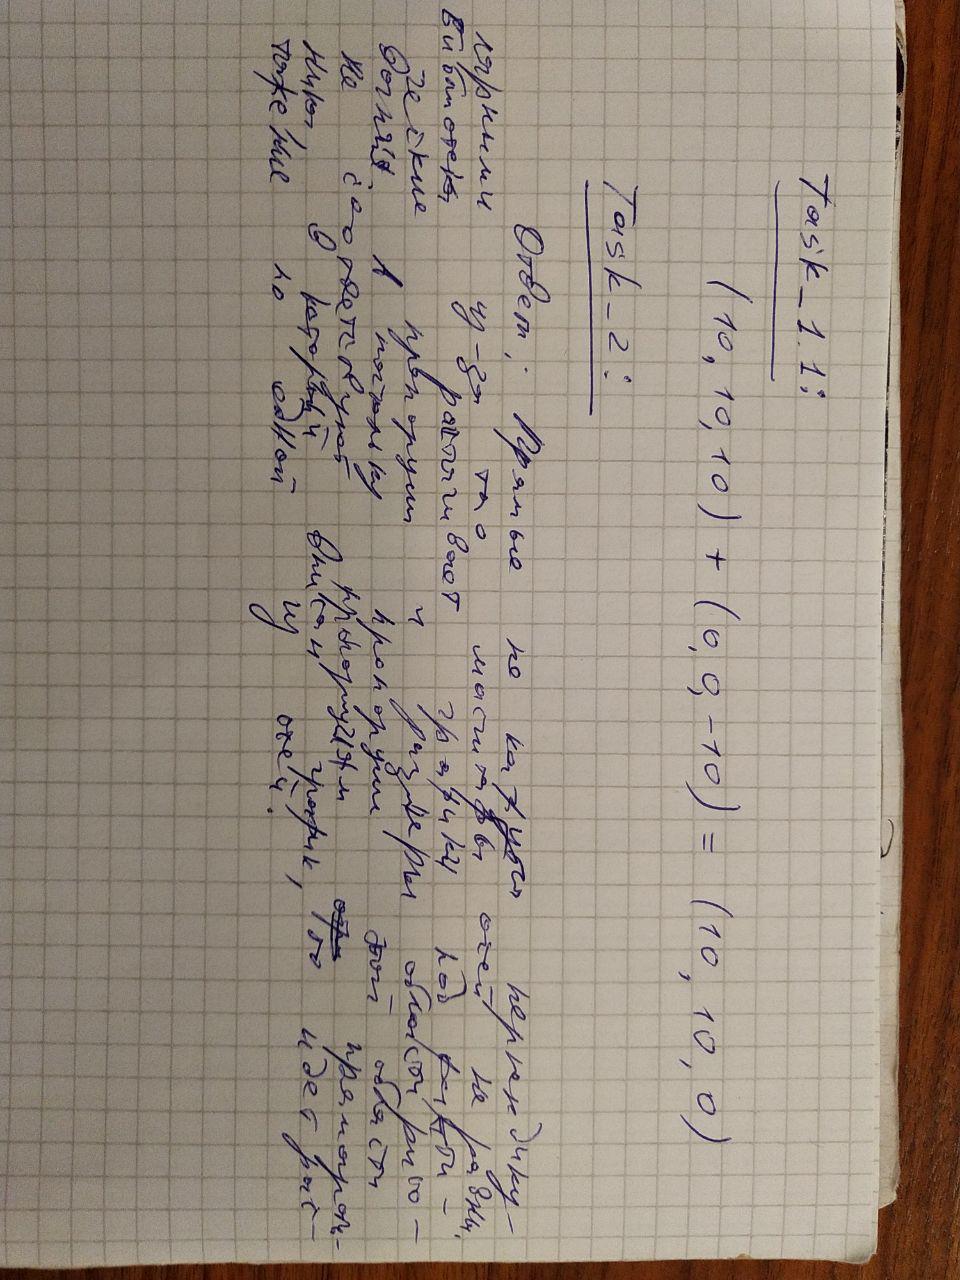 Task_1.1:
(10, 10, 10) + (0, 0, -10) = (10, 10, 0)
Task_2:
Ответ: Прямые не кажутся перпендику-
лярными из-за того масштабы осей не равны.
Библиотека растягивает графики под факти-
ческие пропорции и размеры области рисо-
вания. А поскольку пропорции этой области
не соответствуют пропорциям прямоуголь-
нику, в который вписан график, то идет рас-
тяжение по одной из осей.